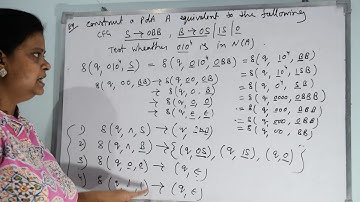 construct a Pda A equivalent to the following
CFG S → 0BB , B → 0S | 1S | 0
Test wheather 010⁴ is in N(A).
δ(q, 010⁴, S) = δ(q, 010⁴, 0BB) = δ(q, 10⁴, BB)
δ(q, 00, BB) → δ(q, 00, 0B) = δ(q, 10⁴, 1SB)
→ δ(q, 0, B) = δ(q, 0⁴, SB)
→ δ(q, 0, 0) = δ(q, 0000, 0BBB)
→ δ(q, ε, ε) = δ(q, 000, BBB)
= δ(q, 000, 0BB)
1) δ(q, Λ, S) → (q, 0BB) = δ(q, 00, BB)
2) δ(q, Λ, B) → {(q, 0S), (q, 1S), (q, 0)}
3) δ(q, 0, 0) → (q, ε)
4) δ(q, 1, 1) → (q, ε)